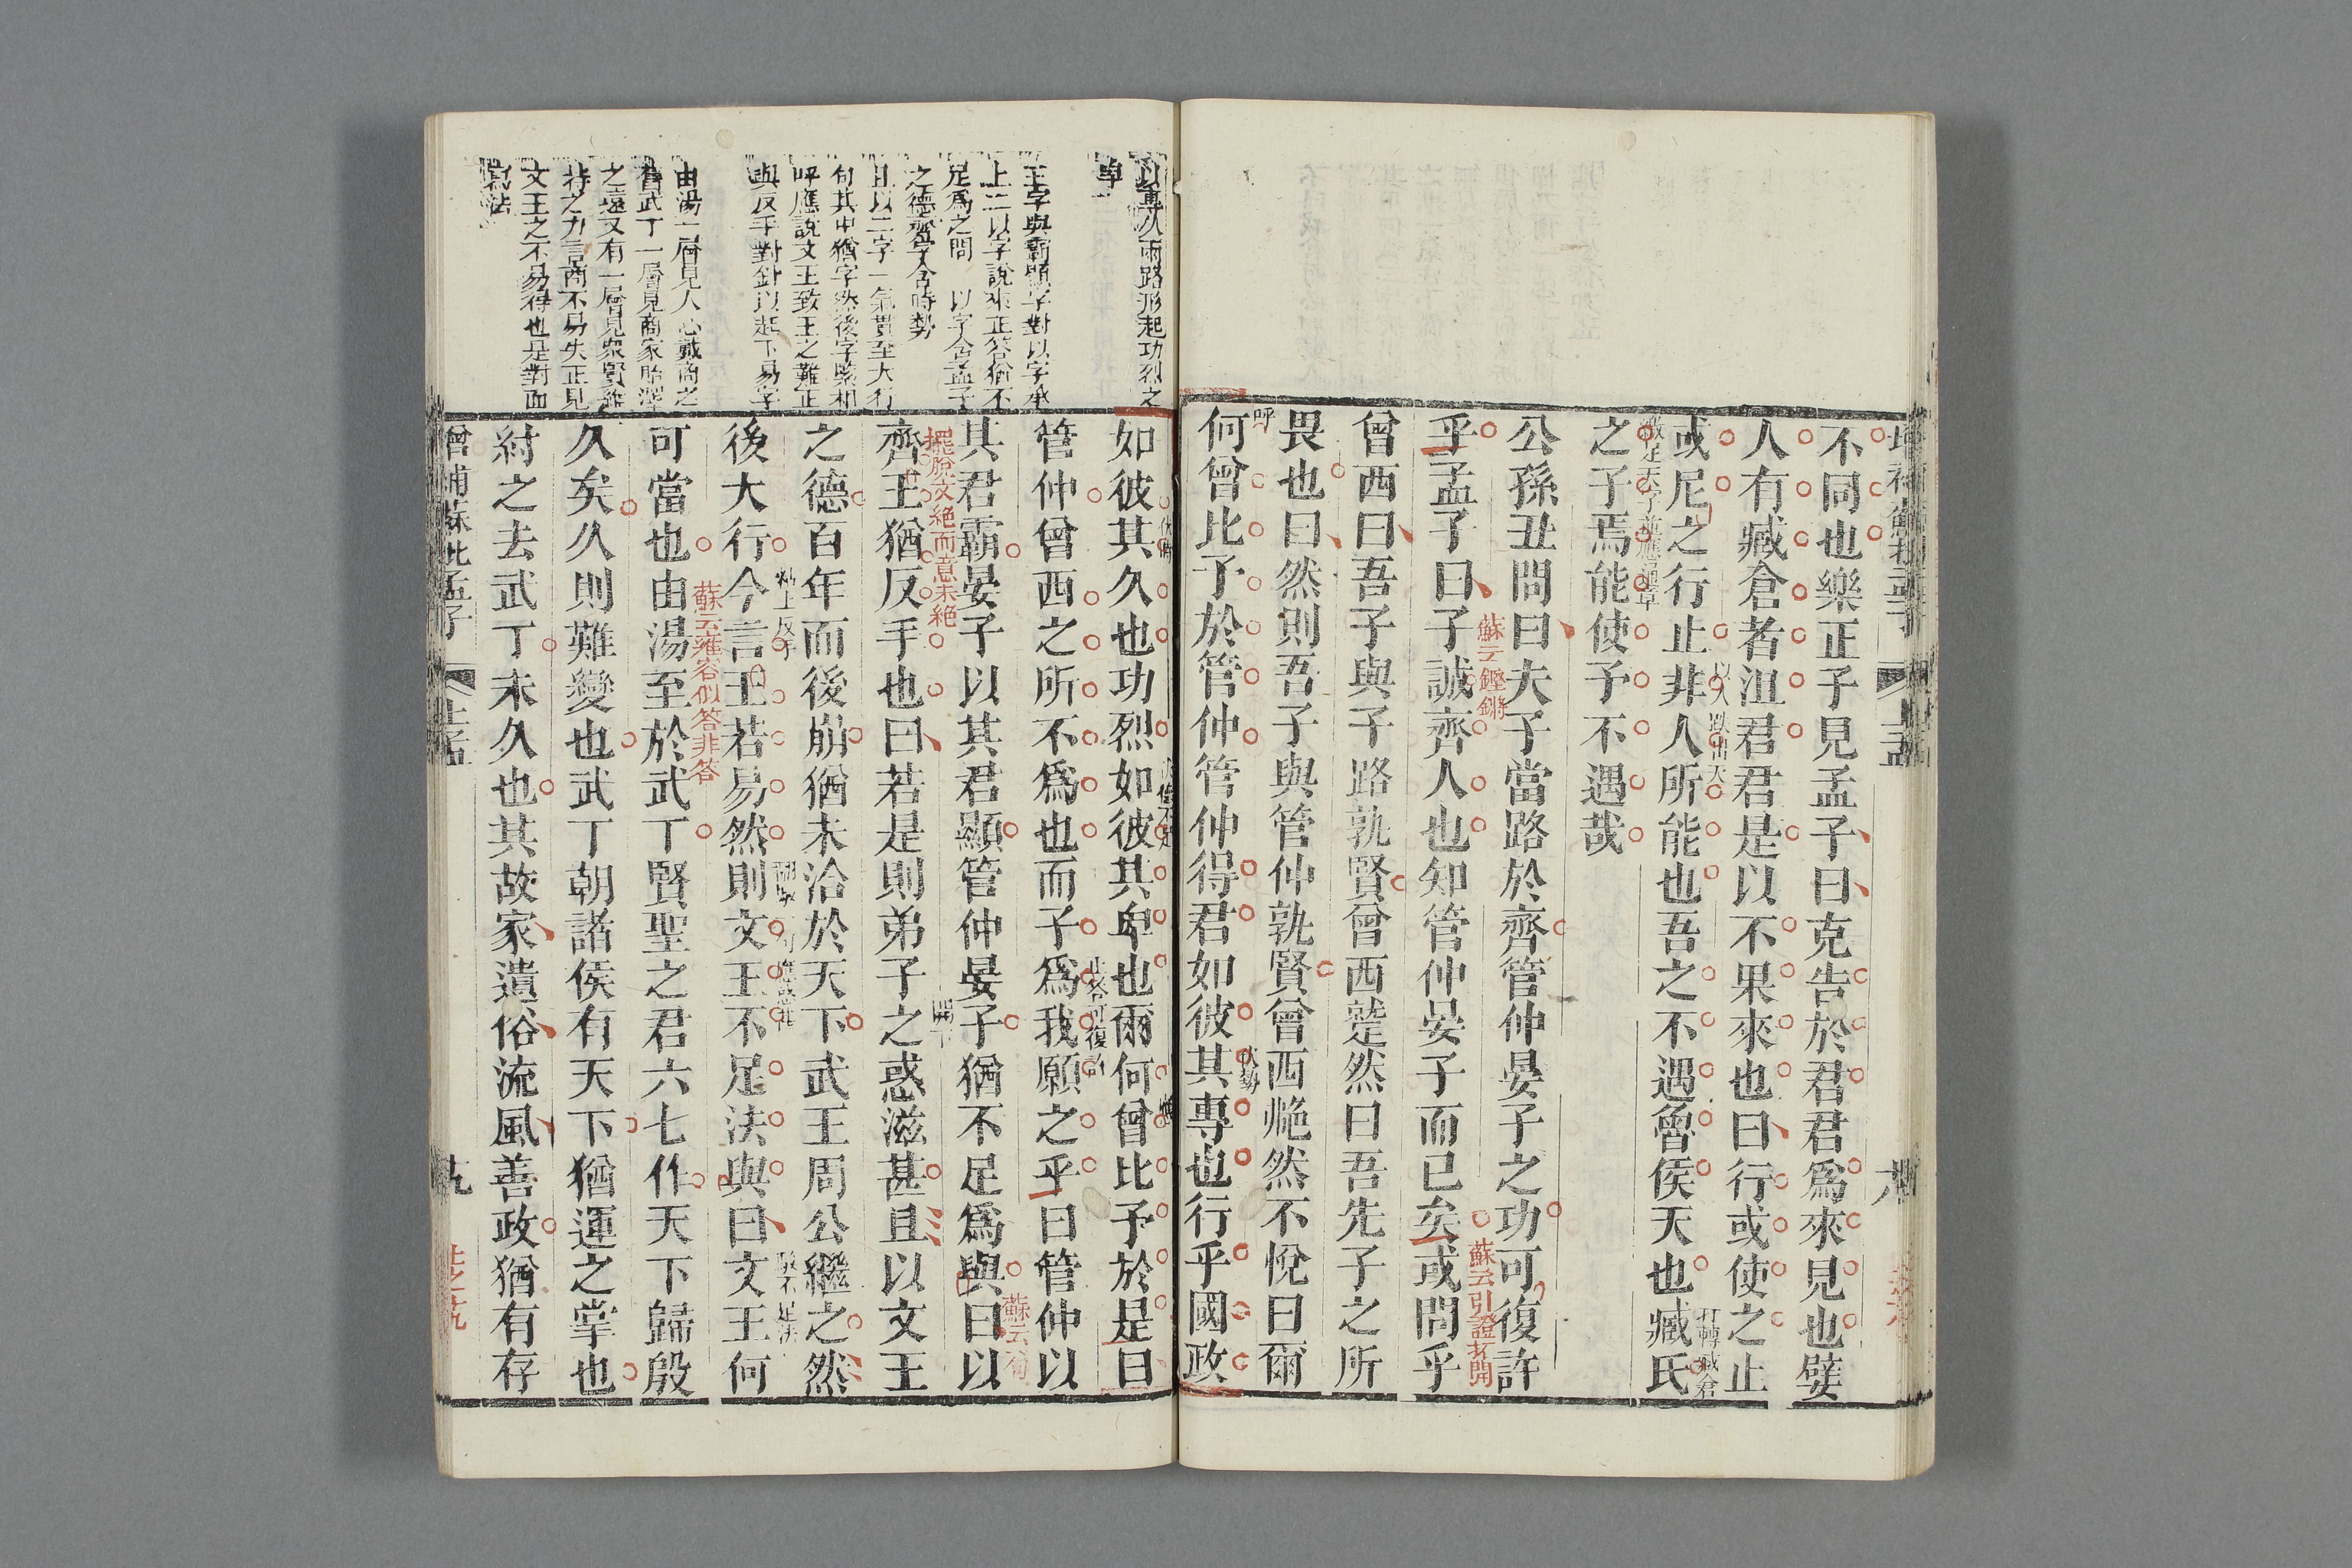 不同也樂正子見孟子曰克告於君君爲來見也嬖
人有臧倉者沮君君是以不果來也曰行或使之止
或尼之行止非人所能也吾之不遇魯侯天也臧氏
之子焉能使予不遇哉
公孫丑問曰夫子當路於齊管仲晏子之功可復許
蘇云鏗鏘
乎孟子曰子誠齊人也知管仲晏子而已矣或問乎
蘇云引證抔開
曾西曰吾子與子路孰賢曾西蹵然曰吾先子之所
畏也曰然則吾子與管仲孰賢曾西艴然不悅曰爾
呼
何曾比予於管仲管仲得君如彼其專也行乎國政
以事功兩路形起功烈之
卑
王字與霸顯字對以字承
上二以字說來正答猶不
足爲之問 以字含孟子
之德齊字含時勢
且以二字一氣貫至大行
句其中猶字然後字緊相
呼應說文王致王之難正
與反手對針以起下易字
由湯一層見人心戴商之
舊武丁一層見商家貽澤
之遠又有一層見衆賢維
持之力言商不易失正見
文王之不易得也是對面
寫法
如彼其久也功烈如彼其卑也爾何曾比予於是曰
管仲曾西之所不爲也而子爲我願之乎曰管仲以
其君霸晏子以其君顯管仲晏子猶不足爲與曰以
擺脫文絕而意未絕
齊王猶反手也曰若是則弟子之惑滋甚且以文王
之德百年而後崩猶未洽於天下武王周公繼之然
後大行今言王若易然則文王不足法與曰文王何
蘇云雍容似答非答
可當也由湯至於武丁賢聖之君六七作天下歸殷
久矣久則難變也武丁朝諸侯有天下猶運之掌也
紂之去武丁未久也其故家遺俗流風善政猶有存
增補蘇批孟子 上孟 九